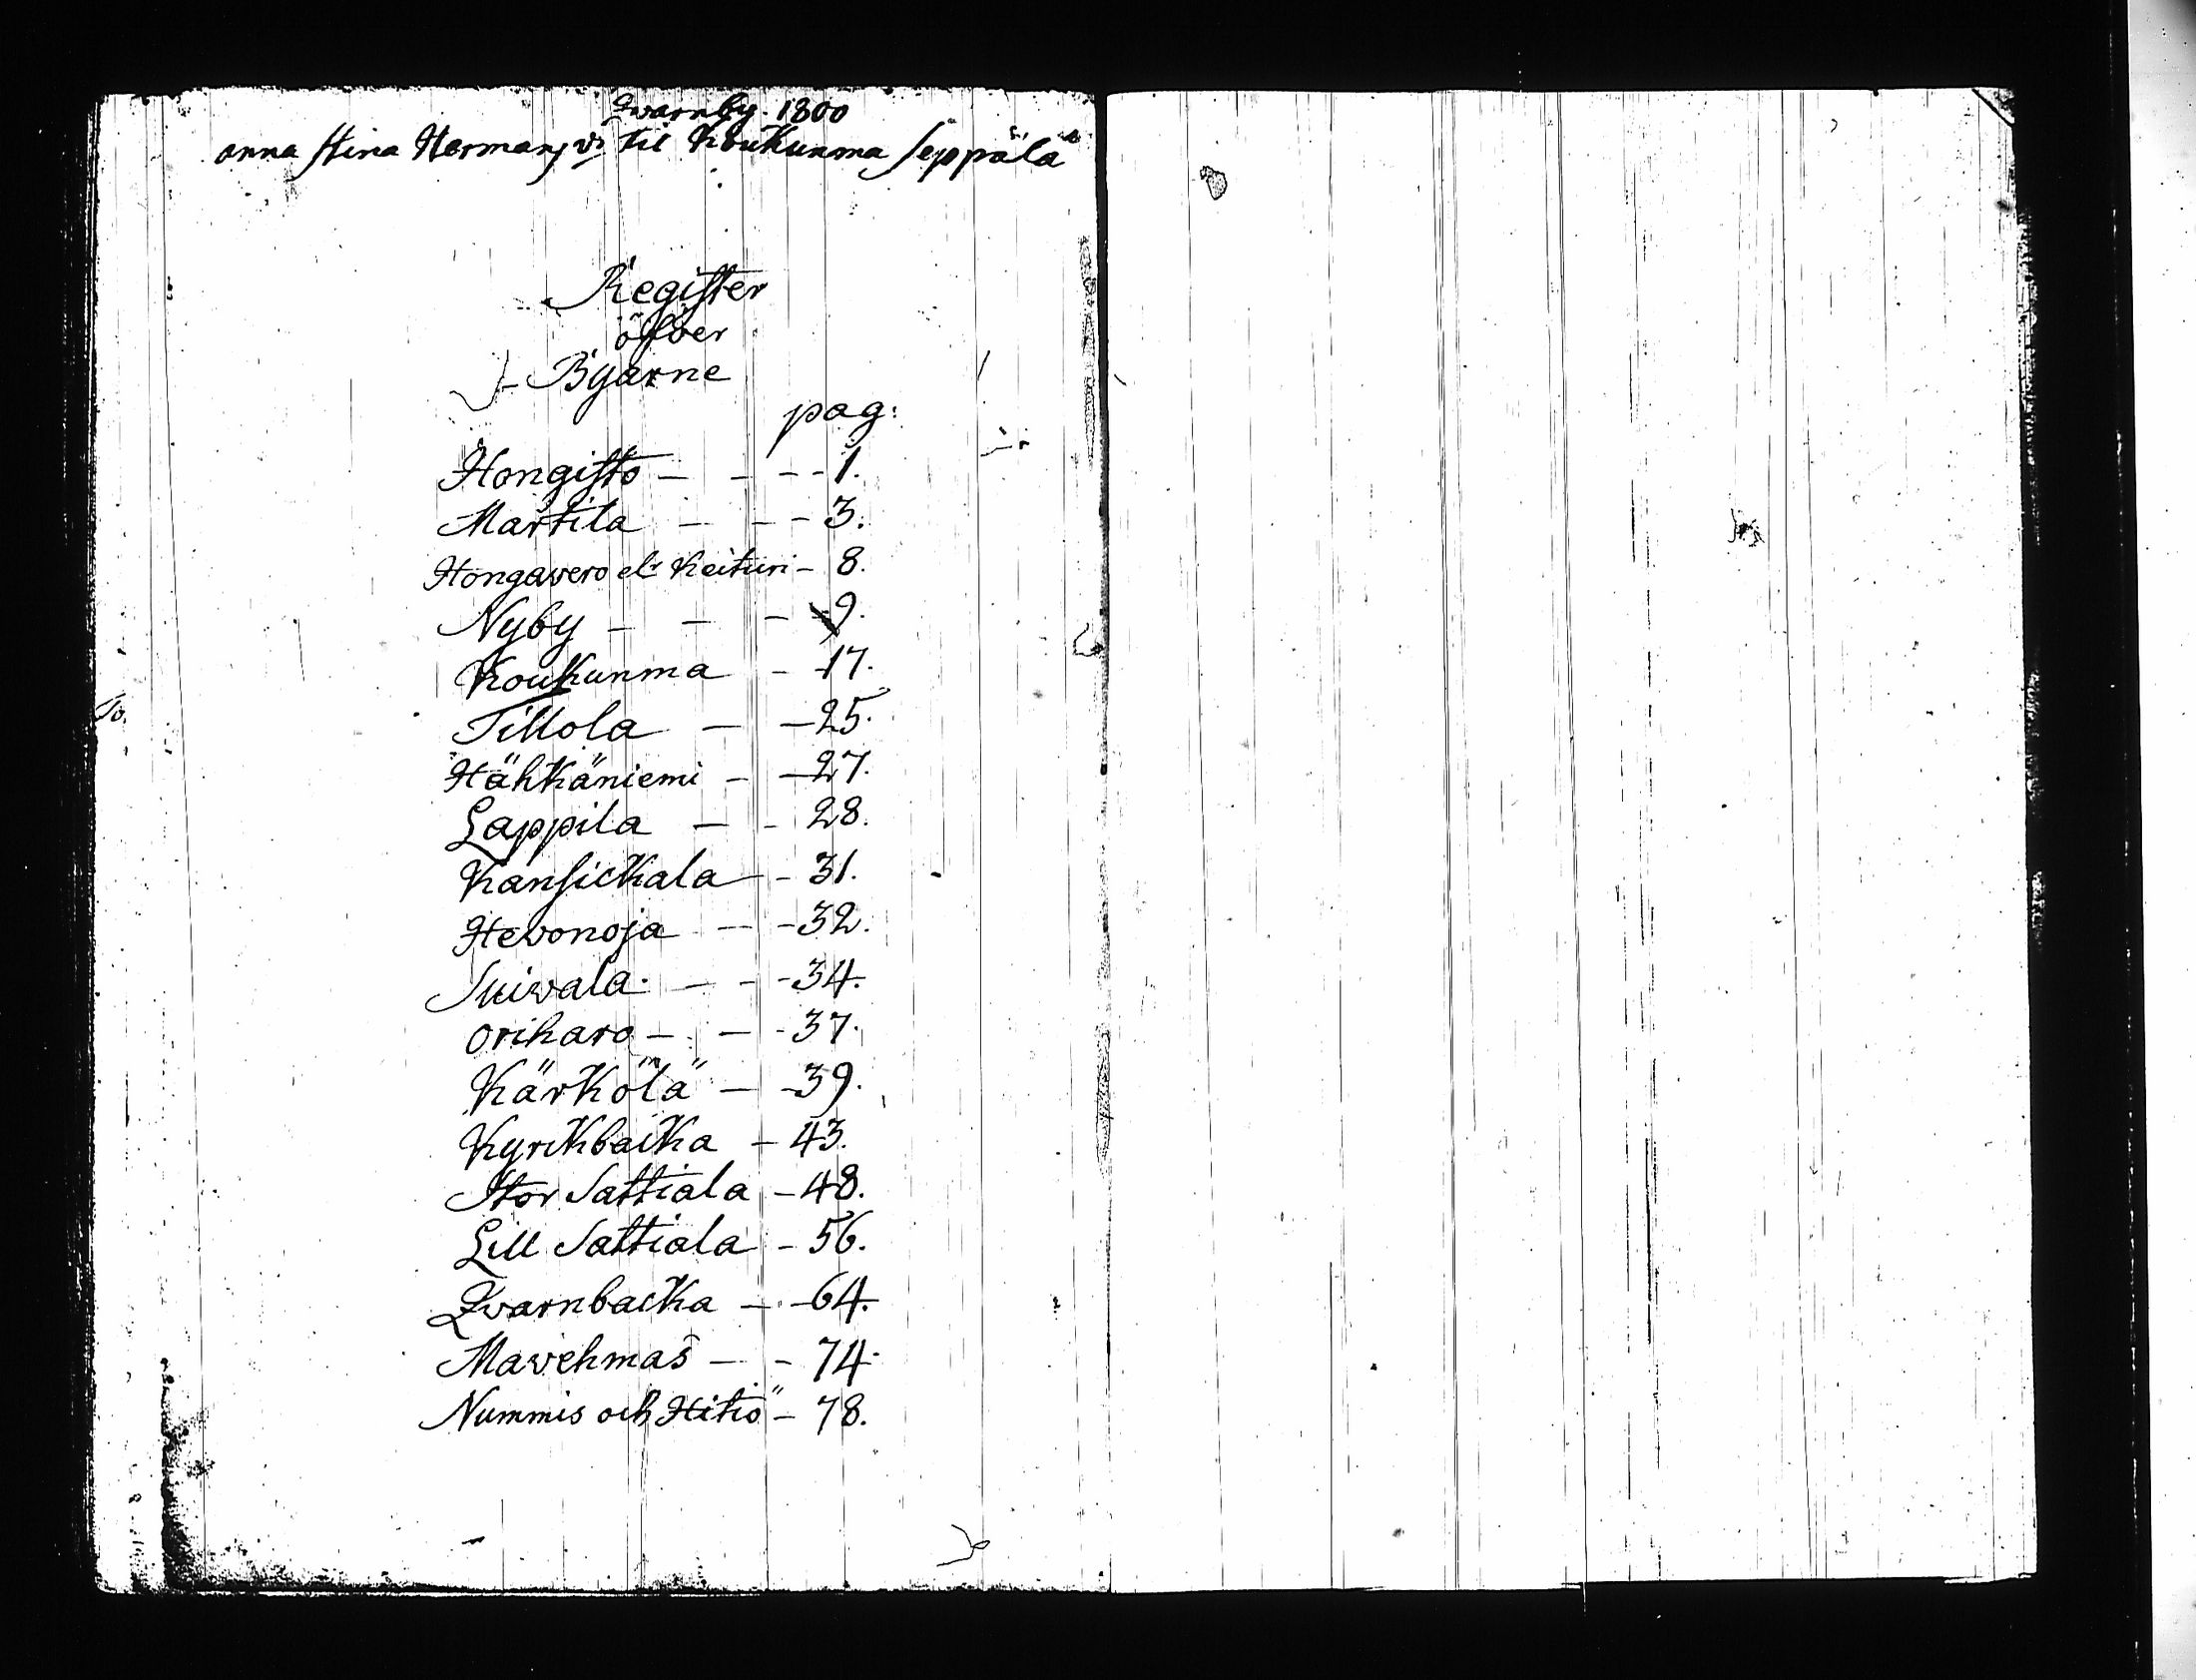 Qvarnby. 1800
anna Stina Hermans dr til Koukunma Seppälä
Register
öfver
Byarne
pag:
Hongisto - - - - 1.
Martila - - - 3.
Hongawero elr Keituri - 8.
Nyby - - - 9.
Koukunma - 17.
Tillola - - 25.
Hähkäniemi - - 27.
Lappila - - 28.
Kansickala - - 31.
Hevonoja - - 32.
Suivala - - - 34.
oriharo - - - 37.
Kärkölä - - 39.
Kyrkbacka - 43.
Stor Sattiala - 48.
Lill Sattiala - 56.
Qvarnbacka - - 64.
Mavehmas - - 74.
Nummis och Hitiö - 78.